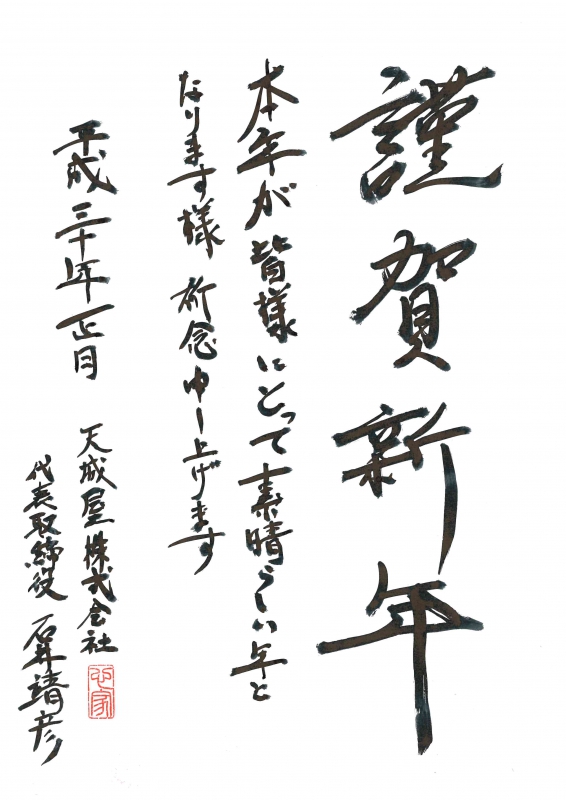 謹賀新年
本年が皆様にとって素晴らしい年と
なります様 祈念申し上げます
平成三十年正月
天城屋株式会社
代表取締役 石井靖彦